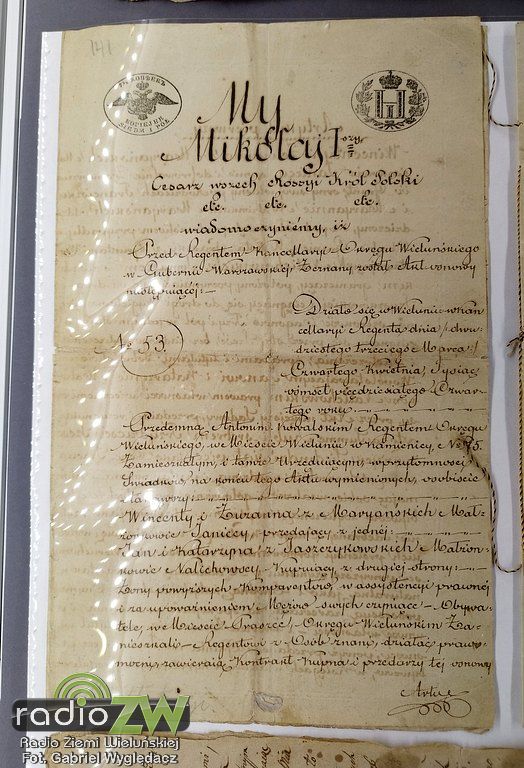 141
75 КОПѢЕКЪ
KOPIEJEK
My
Mikołay Iszy
Cesarz wszech Rossyi Król Polski
etc. etc. etc.
wiadomo czyniémy, iż
Przed Regentem Kancellaryi Okręgu Wieluńskiego
w Gubernii Warszawskiej Zeznany został Akt osnowy
następującéj:—
Działo się w Wieluniu w Kan
cellaryi Regenta dnia / dwu
dziestego trzeciego Marca /
No 53.
Czwartego Kwietnia, Tysiąc
ośmset pięcdziesiatego Czwar
tego roku.
Przedemną Antonim Kowalskim Regentem Okręgu
Wieluńskiego, we Mieście Wieluniu w Kamienicy No 75.
Zamieszkałym, i tamże Urzędującym, w przytomności
Świadków, na końcu tego Aktu wymienionych, osobiście
stawający:
Wincenty i Zuzanna z Maryańskich Mał-
żonkowie Janiccy, przedający z jednéj:
Jan i Katarzyna z Jaszczykowskich Małżon-
kowie Nalichowscy Kupujący z drugiej strony:
Żony powyższych Komparentów, w assystencyi prawnej
i za upoważnieniem Mężów swych czyniące — Obywa-
tele, we Mieście Praszce, Okręgu Wieluńskim Za-
mieszkali, Regentowi z Osób znani, działać prawo-
mocni, zawierają Kontrakt Kupna i przedaży téj osnowy
radioZW
Radio Ziemi Wieluńskiej
Fot. Gabriel Wyględacz